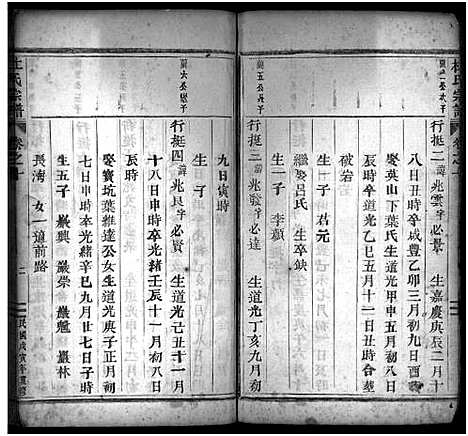 杜氏宗譜
卷之十
行挺二 諱兆雲字必羣 生嘉慶庚辰二月十
八日丑時卒咸豐乙卯三月初九日酉時
娶英山下葉氏生道光甲申五月初八日
辰時卒道光乙巳五月十二日辰時合塟
破岩
生一子 君元
繼娶呂氏 生卒缺
生一子 李顯
行挺三 諱兆發字必達 生道光丁亥九月初
九日寅時
行挺四 諱兆良字必賢 生道光己丑十一月
十八日申時卒光緒壬辰十一月初八日
辰時
娶寶坑葉維達公女生道光庚子正月初
七日申時卒光緒辛巳九月廿七日子時
生五子 嚴興 嚴榮 嚴林
長濤 女一適前路
杜氏宗譜
卷之十
民國戊寅年重修